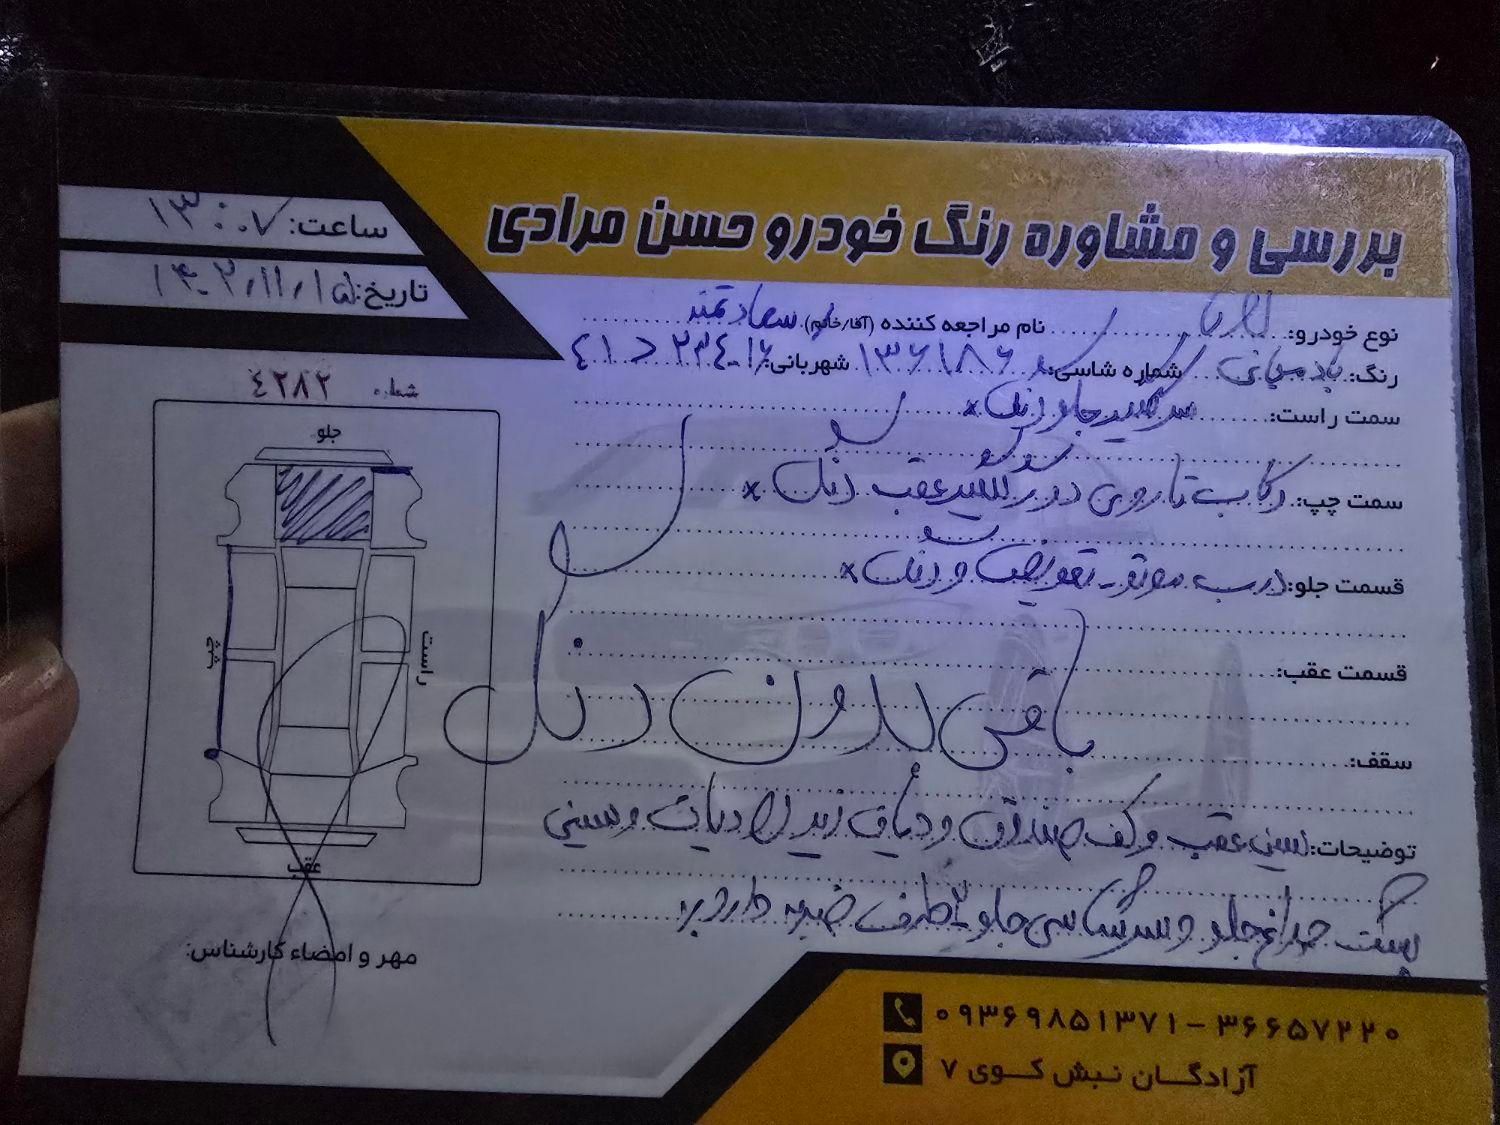 بررسی و مشاوره رنگ خودرو حسن مرادی
ساعت: ۱۳:۰۷
تاریخ: ۱۴۰۲/۱۱/۱۵
نوع خودرو: نام مراجعه کننده (آقا/خانم): سعادتمند
رنگ: بادمجانی شماره شاسی: ۱۳۶۱۸۶ شهربانی:
سمت راست: سرگلگیر جلو رنگ *
سمت چپ: رکاب تا روی دور گلگیر عقب رنگ *
قسمت جلو: درب موتور تعویض و رنگ *
قسمت عقب:
باقی بدون رنگ
سقف:
توضیحات: سینی عقب و کف صندوق و دیاق زیر رادیات و سینی
پشت چراغ جلو و سرشاسی جلو ۲ طرف ضربه دارد
شماره ۴۲۸۲
جلو
چپ
راست
عقب
مهر و امضاء کارشناس:
۰۹۳۶۹۸۵۱۳۷۱-۳۶۶۵۷۲۲۰
آزادگان نبش کوی ۷